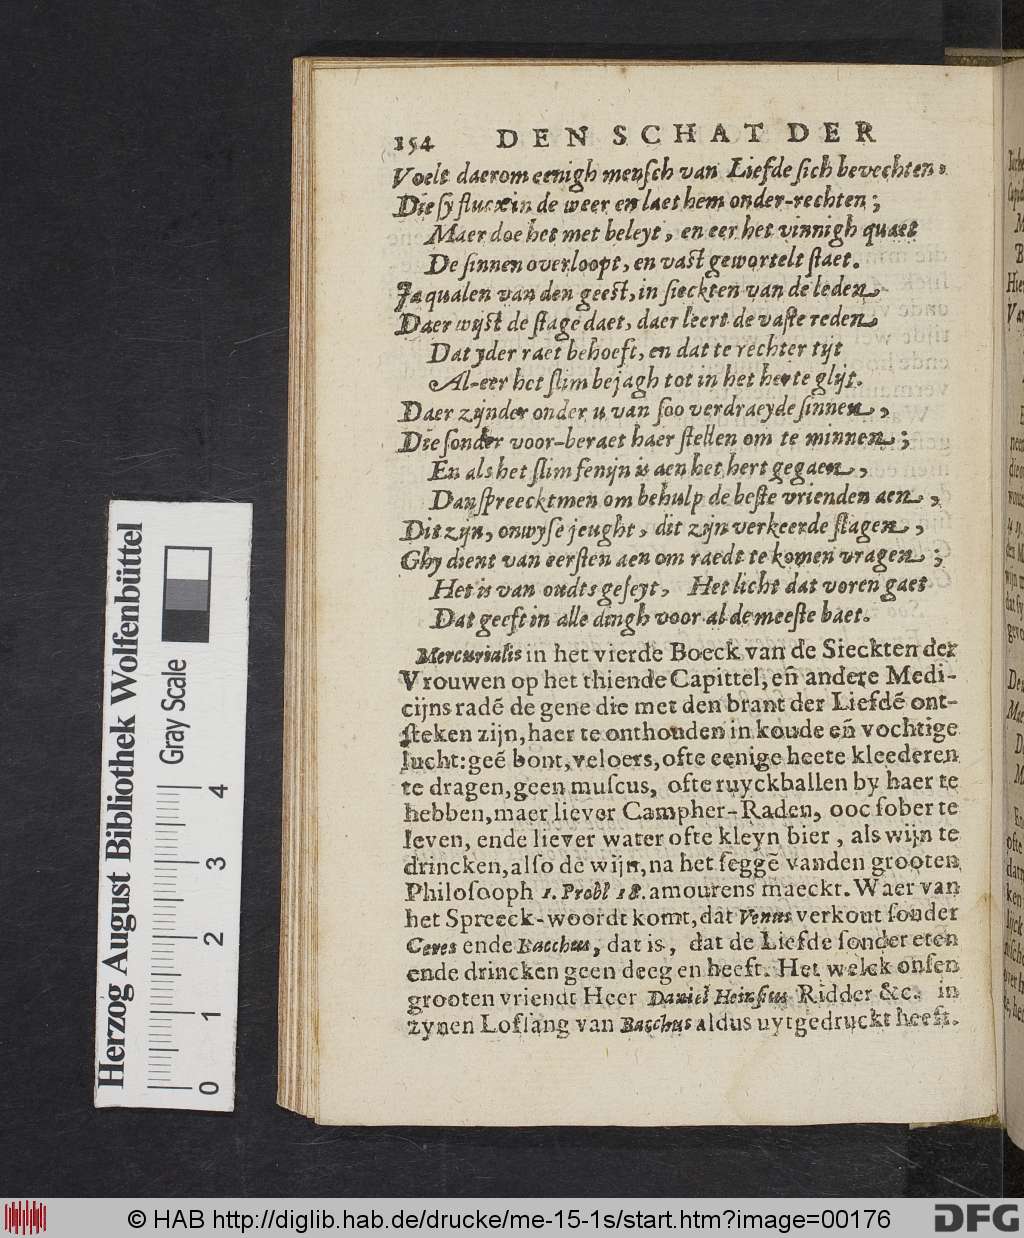 154 DEN SCHAT DER
Voelt daerom eenigh menſch van Liefde ſich bevechten,
Die ſy flucx in de weer en laet hem onder-rechten;
Maer doe het met beleyt, en eer het vinnigh quaet
De ſinnen overloopt, en vaſt gewortelt ſtaet.
Ja qualen van den geeſt, in ſieckten van de leden
Daer wijſt de ſlage daet, daer leert de vaſte reden
Dat yder raet behoeft, en dat te rechter tijt
Al-eer het ſlim bejagh tot in het herte glijt.
Daer zijnder onder u van ſoo verdraeyde ſinnen,
Die ſonder voor-beraet haer ſtellen om te minnen;
En als het ſlim fenijn is aen het hert gegaen,
Dan ſpreecktmen om behulp de beſte vrienden aen,
Dit zijn, onwyſe jeught, dit zijn verkeerde ſlagen,
Ghy dient van eerſten aen om raedt te komen vragen;
Het is van oudts geſeyt, Het licht dat voren gaet
Dat geeft in alle dingh voor al de meeſte baet.
Mercurialis in het vierde Boeck van de Sieckten der
Vrouwen op het thiende Capittel, en̄ andere Medi-
cijns radē de gene die met den brant der Liefdē ont-
ſteken zijn, haer te onthouden in koude en̄ vochtige
lucht: geē bont, veloers, ofte eenige heete kleederen
te dragen, geen muſcus, ofte ruyckballen by haer te
hebben, maer liever Campher-Raden, ooc ſober te
leven, ende liever water ofte kleyn bier, als wijn te
drincken, alſo de wijn, na het ſeggē vanden grooten
Philoſooph 1. Probl 18. amourens maeckt. Waer van
het Spreeck-woordt komt, dat Venus verkout ſonder
Ceres ende Bacchus, dat is, dat de Liefde ſonder eten
ende drincken geen deeg en heeft. Het welck onſen
grooten vriendt Heer Daniel Heinſius Ridder &c. in
zynen Lofſang van Bacchus aldus uytgedruckt heeft.
Herzog August Bibliothek Wolfenbüttel
Gray Scale
0 1 2 3 4
© HAB http://diglib.hab.de/drucke/me-15-1s/start.htm?image=00176
DFG